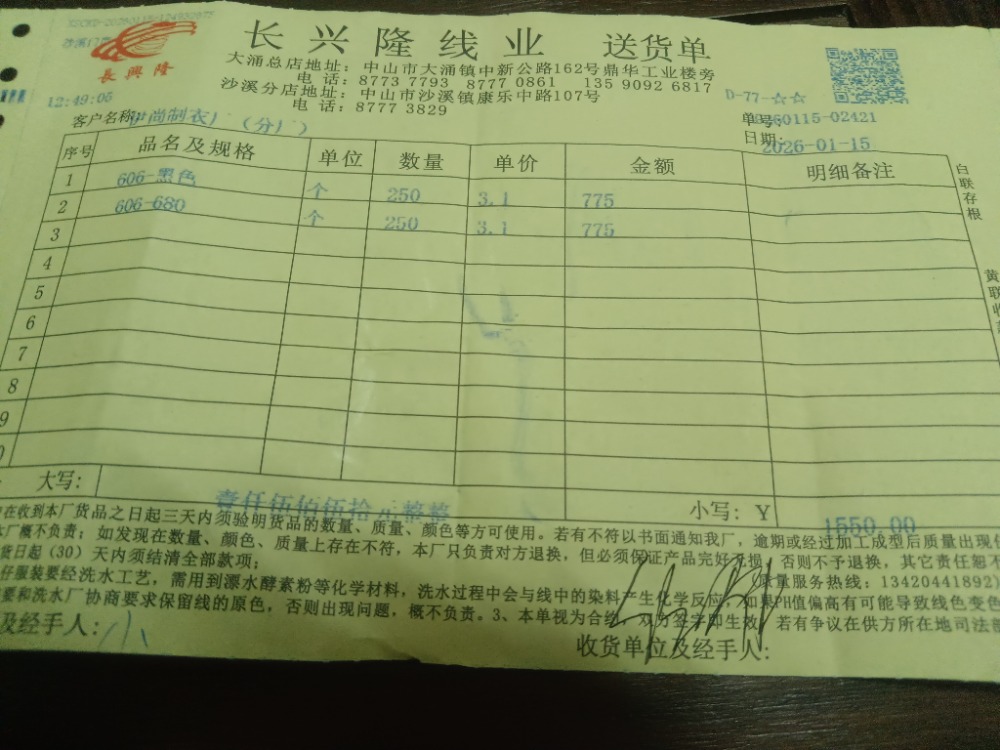 长兴隆线业 送货单
長興隆
大涌总店地址：中山市大涌镇中新公路162号鼎华工业楼旁
电话：8773 7793 8777 0861 135 9092 6817
沙溪分店地址：中山市沙溪镇康乐中路107号
电话：8777 3829
12:49:05
D-77-☆☆
客户名称: 尚制衣厂（分厂）
单号: 260115-02421
日期: 2026-01-15
序号 品名及规格 单位 数量 单价 金额 明细备注
1 606-黑色 个 250 3.1 775
2 606-680 个 250 3.1 775
3
4
5
6
7
8
9
白联存根
黄联收
大写: 壹仟伍佰伍拾元整整 小写: Y 1550.00
在收到本厂货品之日起三天内须验明货品的数量、质量、颜色等方可使用。若有不符以书面通知我厂，逾期或经过加工成型后质量出现
厂概不负责；如发现在数量、颜色、质量上存在不符，本厂只负责对方退换，但必须保证产品完好无损，否则不予退换，其它责任恕不
货日起（30）天内须结清全部款项；
质量服务热线：13420441892
仔服装要经洗水工艺，需用到漂水酵素粉等化学材料，洗水过程中会与线中的染料产生化学反应，如果PH值偏高有可能导致线色变色
要和洗水厂协商要求保留线的原色，否则出现问题，概不负责。3、本单视为合约，双方签字即生效，若有争议在供方所在地司法部
及经手人:
收货单位及经手人: